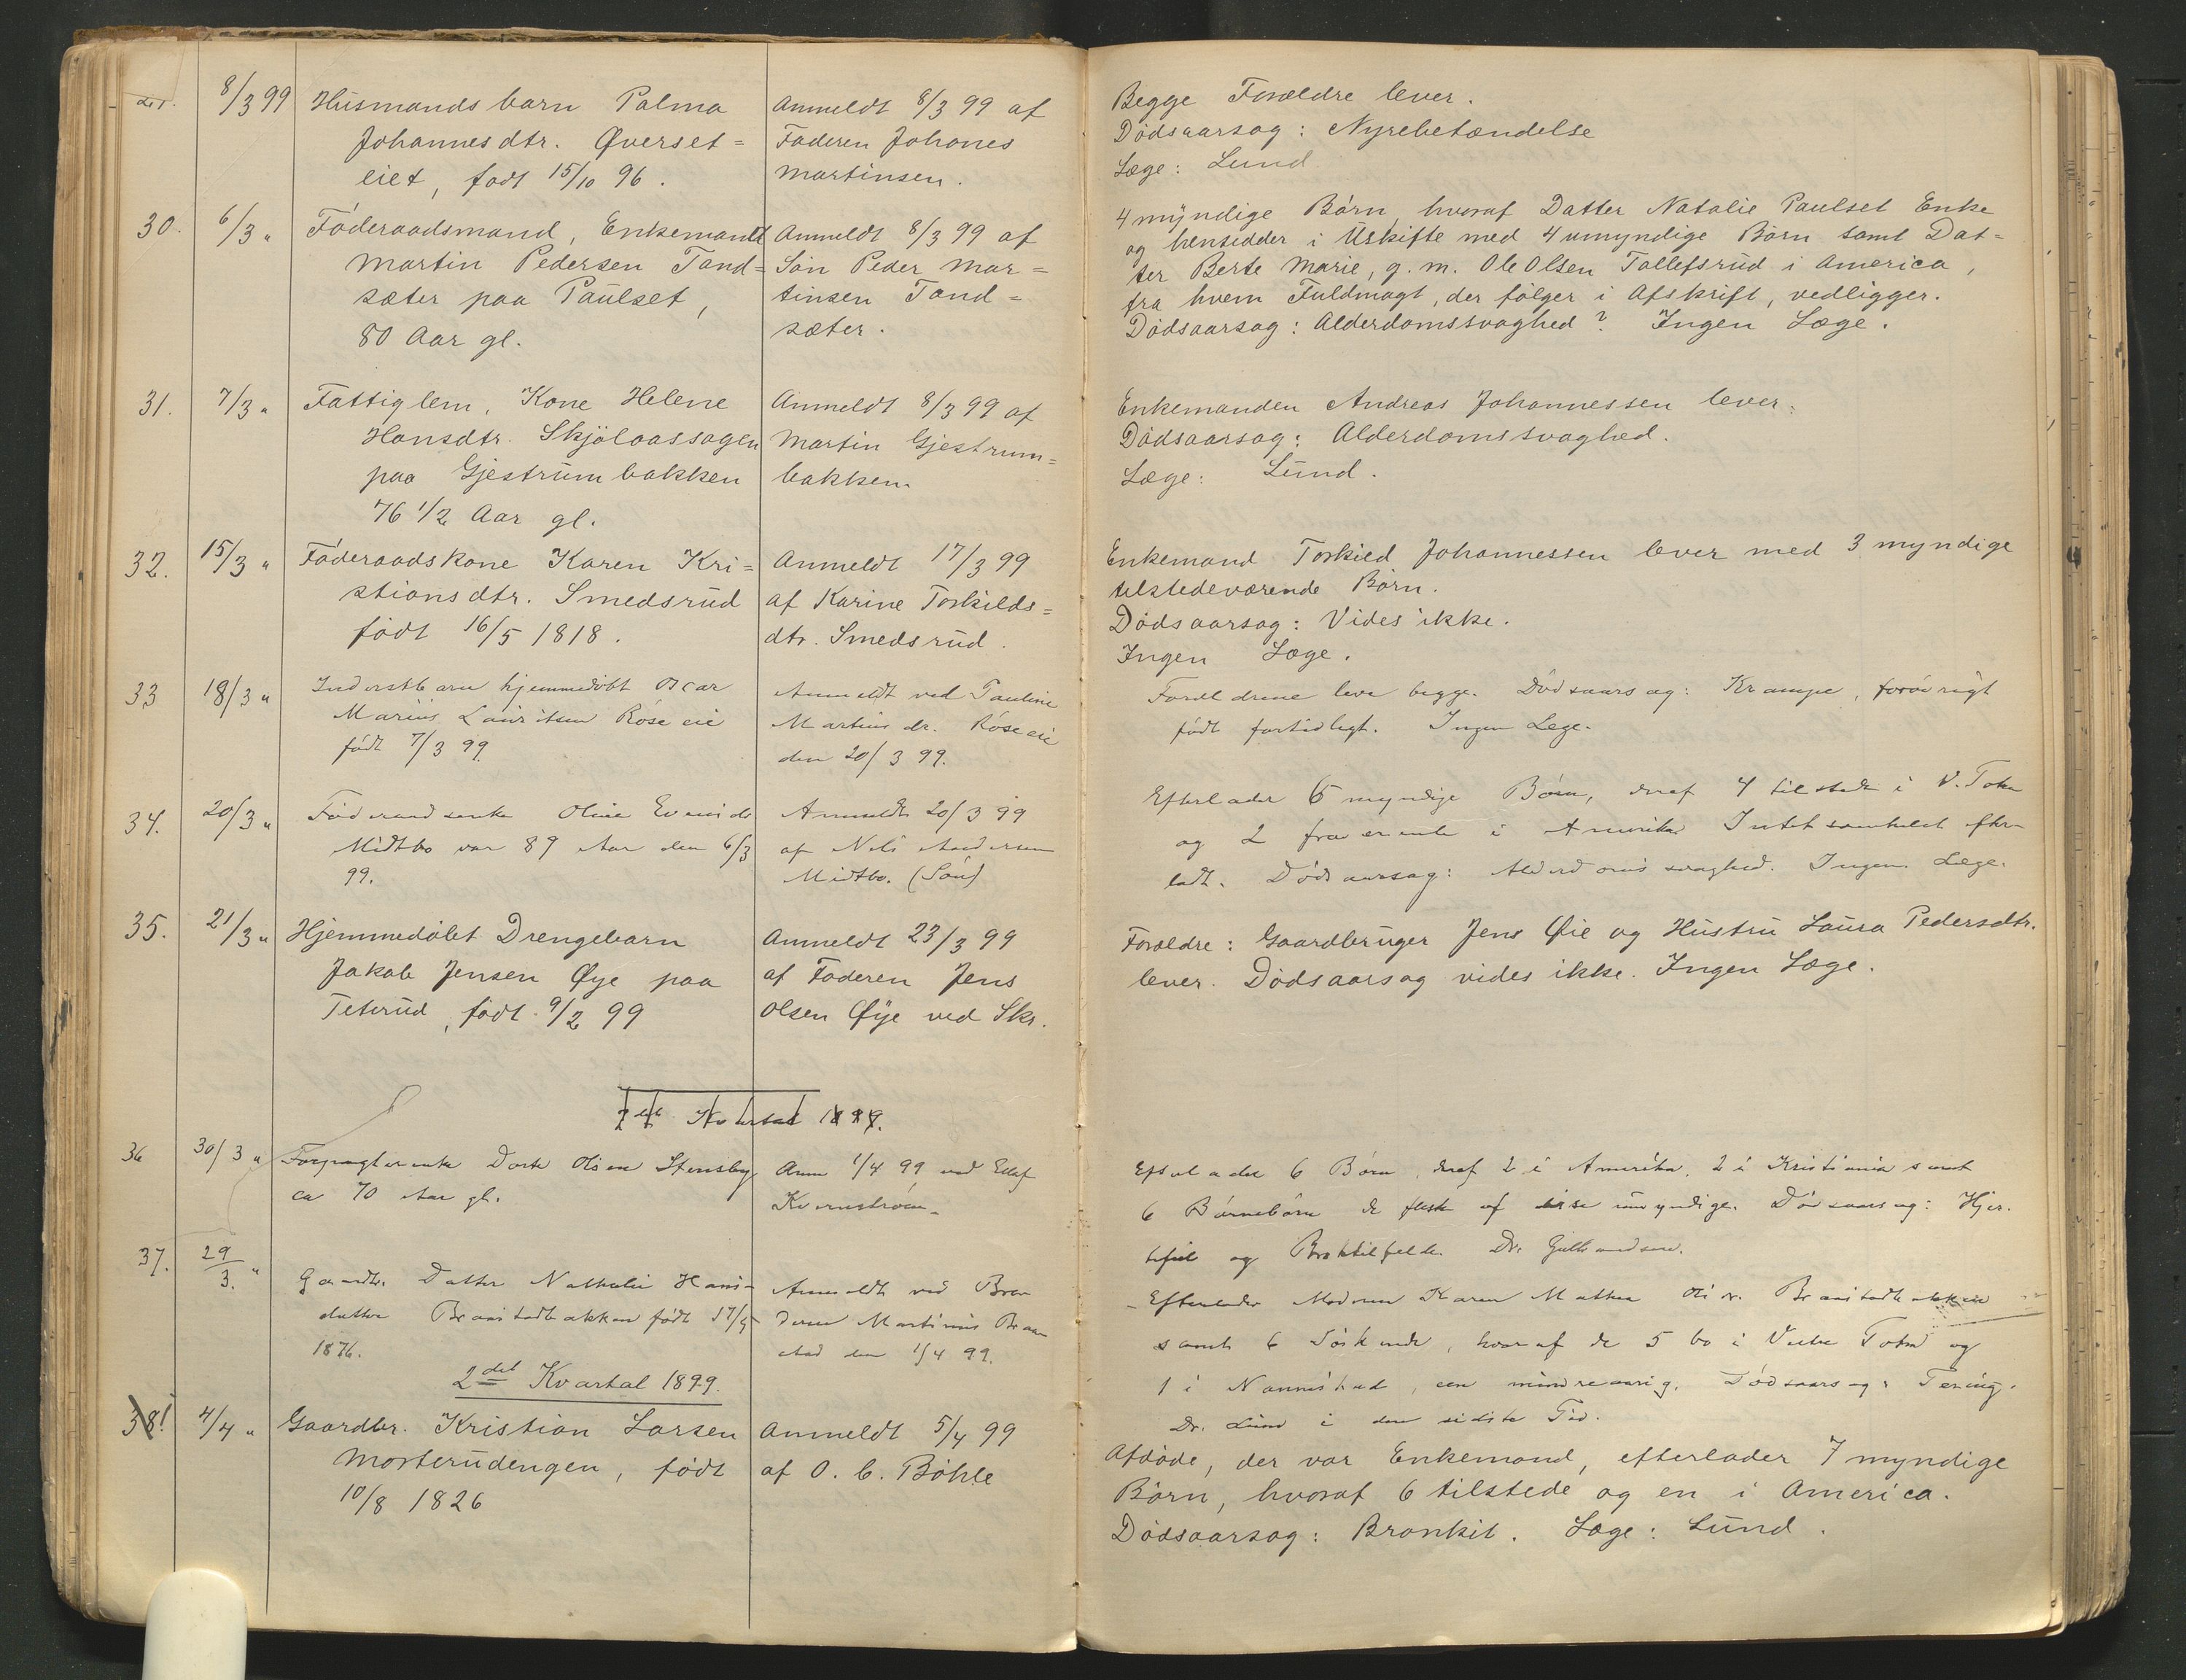 8/3 99 Husmandsbarn Palma
Johannesdtr. Øverset=
eiet, født 15/10 96.
Anmeldt 8/3 99 af
Faderen Johanes
Martinsen.
Begge Forældre lever.
Dødsaarsag: Nyrebetændelse
Læge: Lund
30. 6/3 " Føderaadsmand, Enkemand
Martin Pedersen Tand=
sæter paa Paulset,
80 Aar gl.
Anmeldt 8/3 99 af
Søn Peder Mar=
tinsen Tand=
sæter.
4 myndige Børn, hvoraf Datter Natalie Paulset Enke
og hensidder i Uskifte med 4 umyndige Børn samt Dat=
ter Berte Marie, g. m. Ole Olsen Tollefsrud i America,
fra hvem Fuldmagt, der følger i Afskrift, vedligger.
Dødsaarsag: Alderdomssvaghed? Ingen Læge.
31. 7/3 " Fattiglem, Kone Helene
Hansdtr. Skjølaassagen
paa Gjestrumbakken
76 1/2 Aar gl.
Anmeldt 8/3 99 af
Martin Gjestrum=
bakken
Enkemanden Andreas Johannessen lever.
Dødsaarsag: Alderdomssvaghed.
Læge: Lund.
32. 15/3 " Føderaadskone Karen Kri=
stiansdtr. Smedsrud
født 16/5 1818.
Anmeldt 17/3 99
af Karine Torkilds=
dtr. Smedsrud.
Enkemand Torkild Johannessen lever med 3 myndige
tilstedeværende Børn.
Dødsaarsag: Vides ikke.
Ingen Læge.
33 18/3 " Inderstbarn hjemmedøbt Oscar
Marius Lauritsen Røse eie
født 7/3 99.
Anmeldt ved Pauline
Martinsdr. Røse eie
den 20/3 99.
Forældrene leve begge. Dødsaarsag: Krampe, forøvrigt
født fortidligt. Ingen Læge.
34. 20/3 " Føderaadsenke Oline Evensdr
Midtbo var 89 Aar den 6/3
99.
Anmeldt 20/3 99
af Nils Andersen
Midtbo. (Søn)
Efterlader 6 myndige Børn, deraf 4 tilstede i V. Toten
og 2 fraværende i Amerika Intet somhelst efter
ladt. Dødsaarsag: Alderdomssvaghed. Ingen Læge.
35. 21/3 " Hjemmedøbt Drengebarn
Jakob Jensen Øye paa
Teterud, født 9/2 99
Anmeldt 23/3 99
af Faderen Jens
Olsen Øye ved Skr.
Forældre: Gaardbruger Jens Øie og Hustru Laura Pedersdtr.
lever. Dødsaarsag vides ikke. Ingen Læge.
Kvartal 1899.
36 30/3 " Forpagterenke Dorte Olsen Stensby
ca 70 Aar gl.
Anm 1/4 99 ved
Kvernstrøm.
Efterlader 6 Børn, deraf 2 i Amerika, 2 i Kristiania samt
6 Børnebørn de fleste af disse umyndige. Dødsaarsag: Hjer
tefeil og Broktilfelde. Dr. Gulbrandsen.
37. 29/3. " Gaardbr. Datter Nathalie Hans=
datter Braastadbakken født 17/5
1876.
Anmeldt ved Bro
deren Martinius Braa
stad den 1/4 99.
Efterlader Moderen Karen Mathea Olsdr. Braastadbakken
samt 6 Søskende, hvoraf de 5 bo i Vestre Toten og
1 i Nannestad, een mindreaarig. Dødsaarsag: Tæring.
Dr. Lund i den sidste Tid.
2det Kvartal 1899.
38! 4/4 " Gaardbr. Kristian Larsen
Morterudengen, født
10/8 1826
Anmeldt 5/4 99
af O. C. Bøhle
Afdøde, der var Enkemand, efterlader 7 myndige
Børn, hvoraf 6 tilstede og en i America.
Dødsaarsag: Bronkit. Læge: Lund.